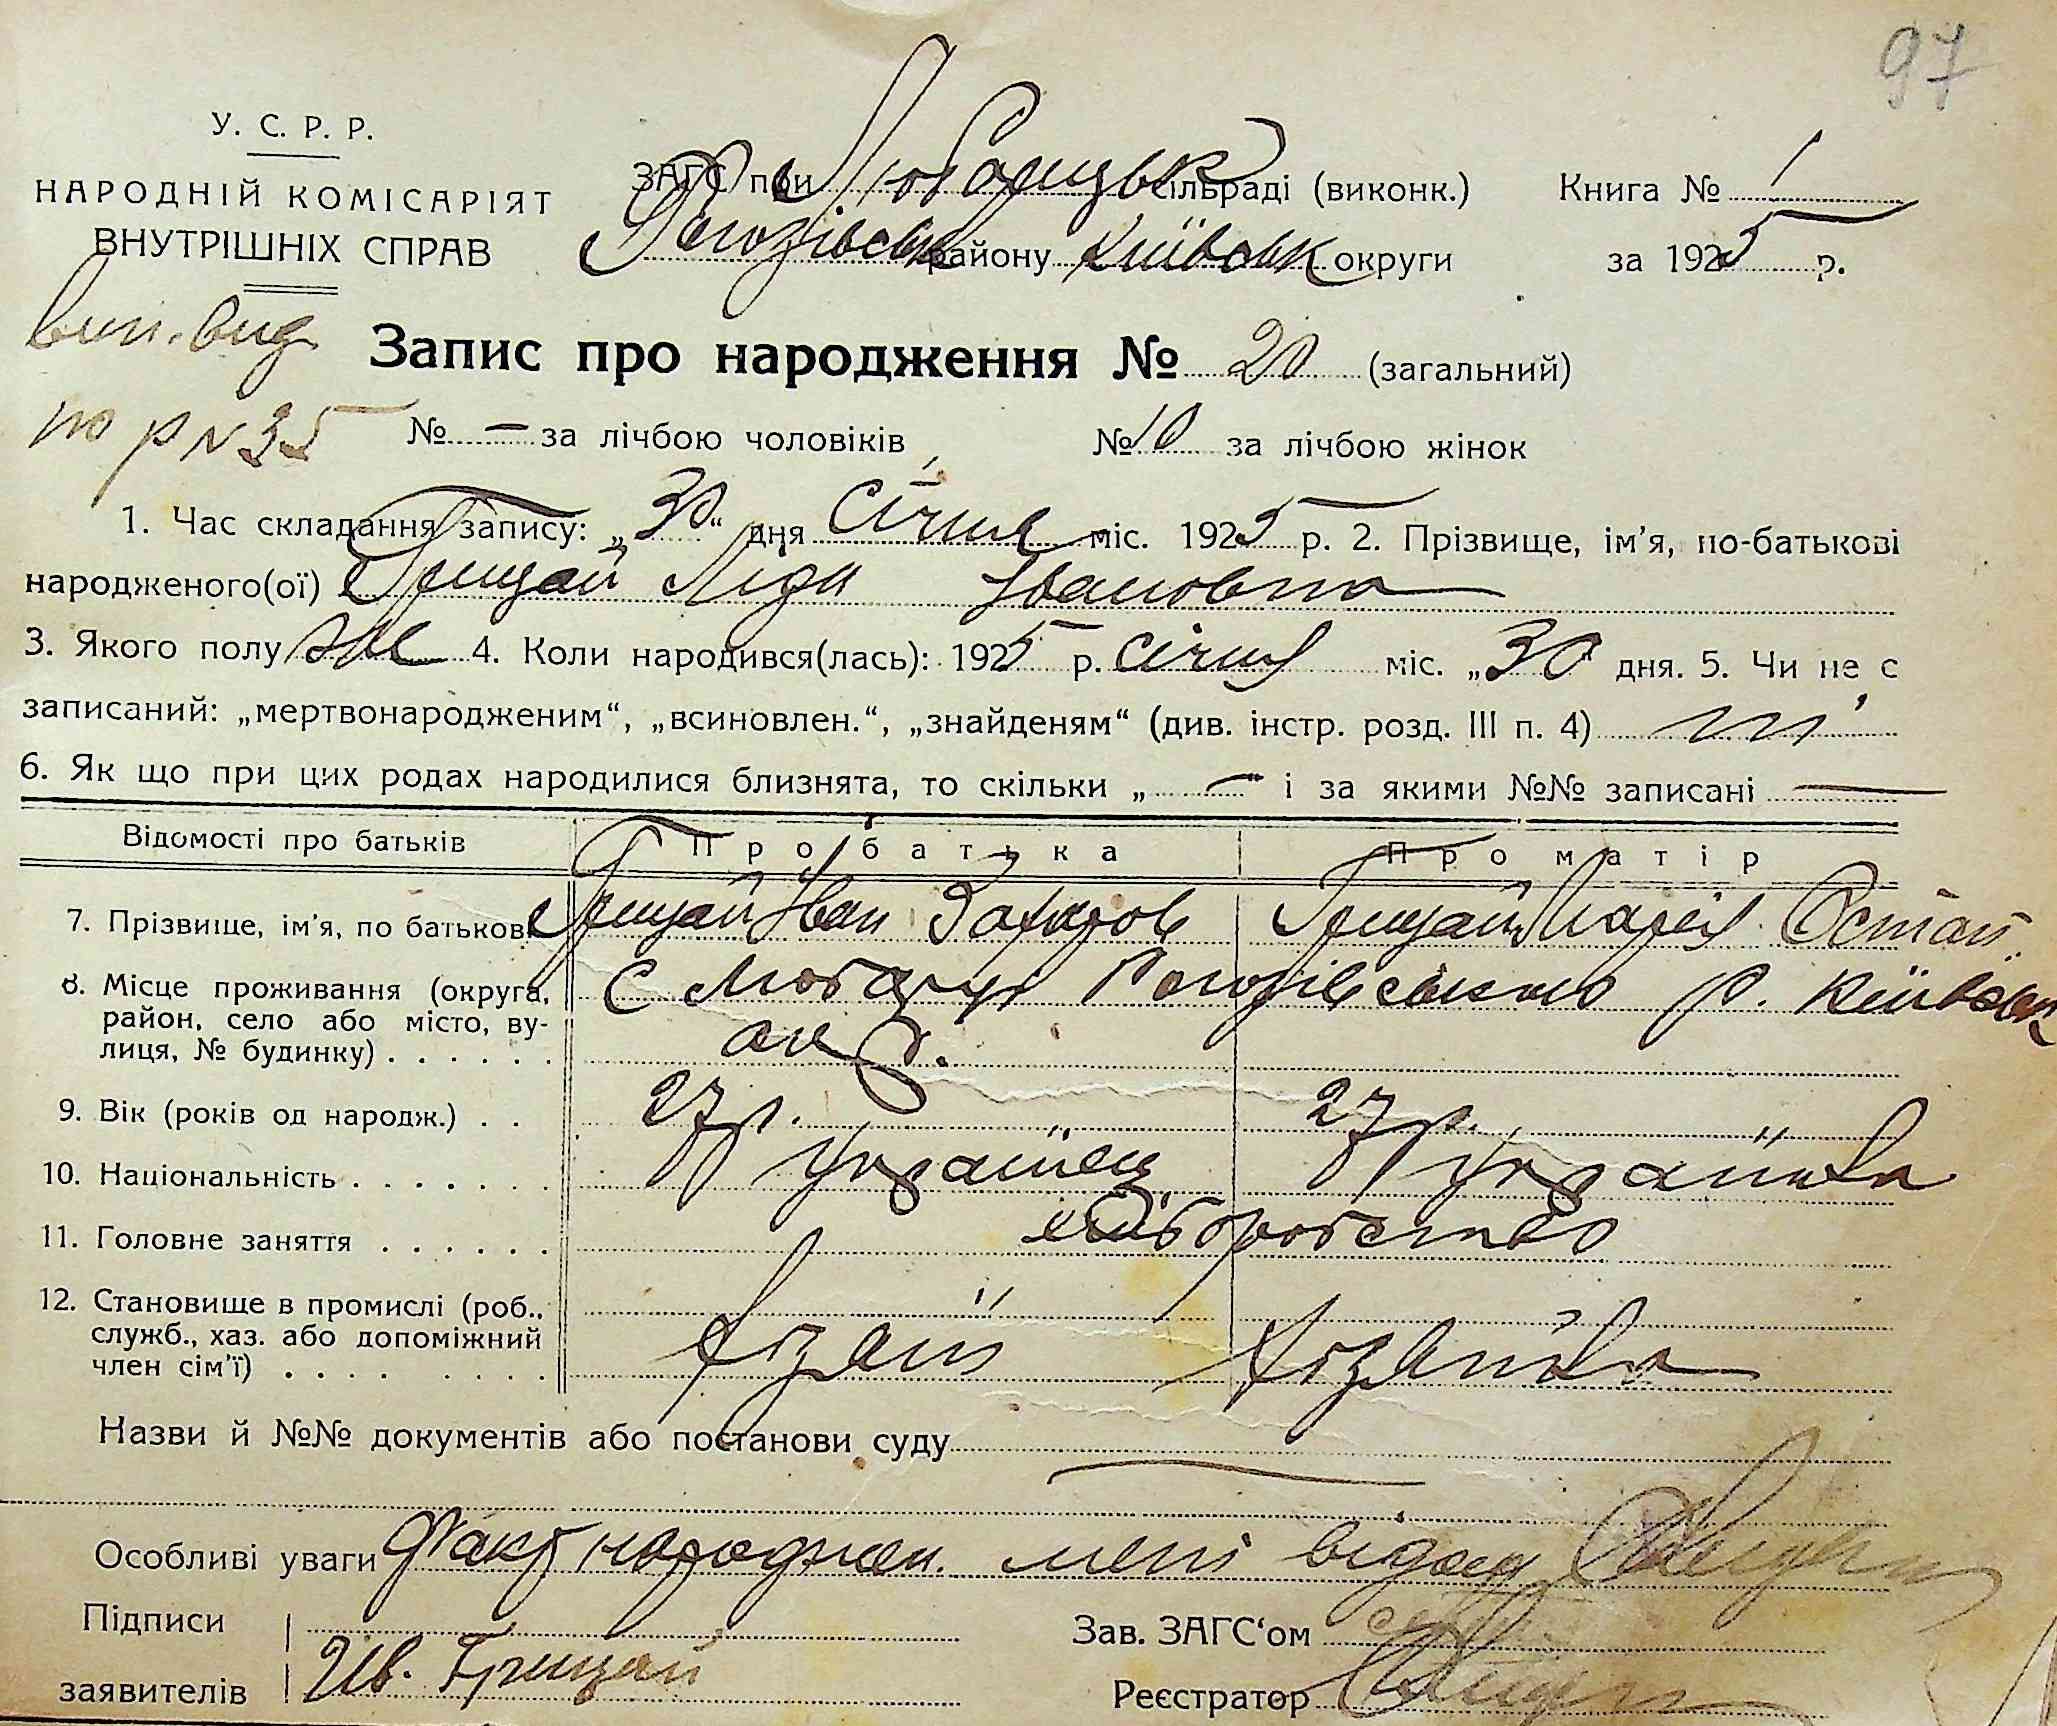 97
У. С. Р. Р.
НАРОДНІЙ КОМІСАРІЯТ
ВНУТРІШНІХ СПРАВ
ЗАГС при Любарецьк сільраді (виконк.) Книга № 1
Рогозівськ району Київськ округи за 1925 р.
вип. вид
по р N 35
Запис про народження № 20 (загальний)
№ — за лічбою чоловіків № 10 за лічбою жінок
1. Час складання запису: „30“ дня Січня міс. 1925 р. 2. Прізвище, ім’я, по-батькові
народженого(ої) Грицай Ліда Івановна
3. Якого полу жи 4. Коли народився(лась): 1925 р. січня міс. „30 дня. 5. Чи не є
записаний: „мертвонародженим“, „всиновлен.“, „знайденям“ (див. інстр. розд. III п. 4) ні
6. Як що при цих родах народилися близнята, то скільки „ — “ і за якими №№ записані —
Відомості про батьків Про батька Про матір
7. Прізвище, ім’я, по батькові Грицай Іван Захаров Грицай Марія Остап.
8. Місце проживання (округа, С Любарці Рогозівського р. Київськ
район, село або місто, ву-
лиця, № будинку) . . . . . . окр.
9. Вік (років од народж.) . . 27 р. 27 р.
10. Національність . . . . . . . Українец Українка
11. Головне заняття . . . . . . хліборобство
12. Становище в промислі (роб.,
служб., хаз. або допоміжний
член сім’ї) . . . . . . . . хозяїн хозяйка
Назви й №№ документів або постанови суду —
Особливі уваги Факт народжен. мені відом
Підписи
заявителів Ив. Грицай
Зав. ЗАГС‘ом
Реєстратор